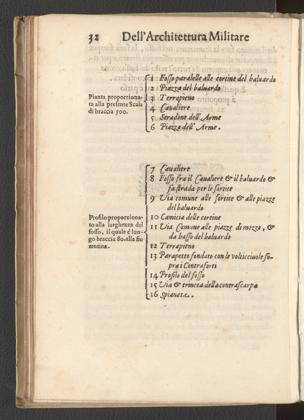 32 Dell'Architettura Militare
Pianta proportiona-
ta alla presente Scala
di braccia 300.
1 Fosso paralelle alle cortine del baluardo
2 Piazza del baluardo
3 Terrapieno
4 Cavaliere
5 Stradine dell'Arme
6 Piazza dell'Arme.
Profilo proportiona-
to alla larghezza del
fosso, il quale è lun-
go braccia 80. alla fio
rentina.
7 Cavaliere
8 Fosso fra il Cavaliere & il baluardo &
sua strada per le sortite
9 Via comune alle sortite & alle piazze
del baluardo
10 Camicia delle cortine
11 Via Comune alle piazze di mezzo, &
da basso del baluardo
12 Terrapieno
13 Parapetto fondato con le volticciuole so-
pra i Contraforti
14 Profilo del fosso
15 Via & trincea della contrascarpa
16 Spianata.